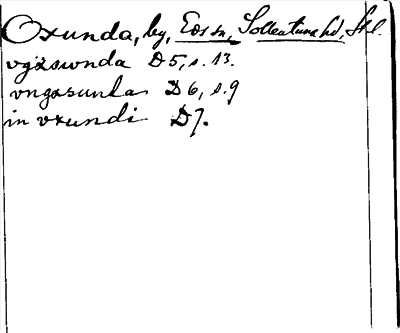 Oxunda, by, Eds sn, Sollentuna hd, Stl.
vgxswnda D 5, s. 13.
vngxsunda D 6, s. 9
in vxundi D 7.